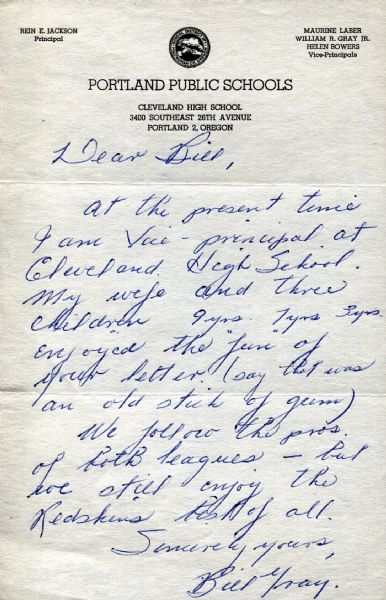 REIN E. JACKSON
Principal
MAURINE LABER
WILLIAM R. GRAY JR.
HELEN BOWERS
Vice-Principals
PORTLAND PUBLIC SCHOOLS
CLEVELAND HIGH SCHOOL
3400 SOUTHEAST 26TH AVENUE
PORTLAND 2, OREGON
Dear Bill,
At the present time
I am Vice-principal at
Cleveland High School.
My wife and three
children 9yrs. 7yrs 3yrs.
enjoyed the "fun" of
your letter. (say that was
an old stick of gum)
We follow the pros.
of both leagues - but
we still enjoy the
Redskins best of all.
Sincerely yours,
Bill Gray.